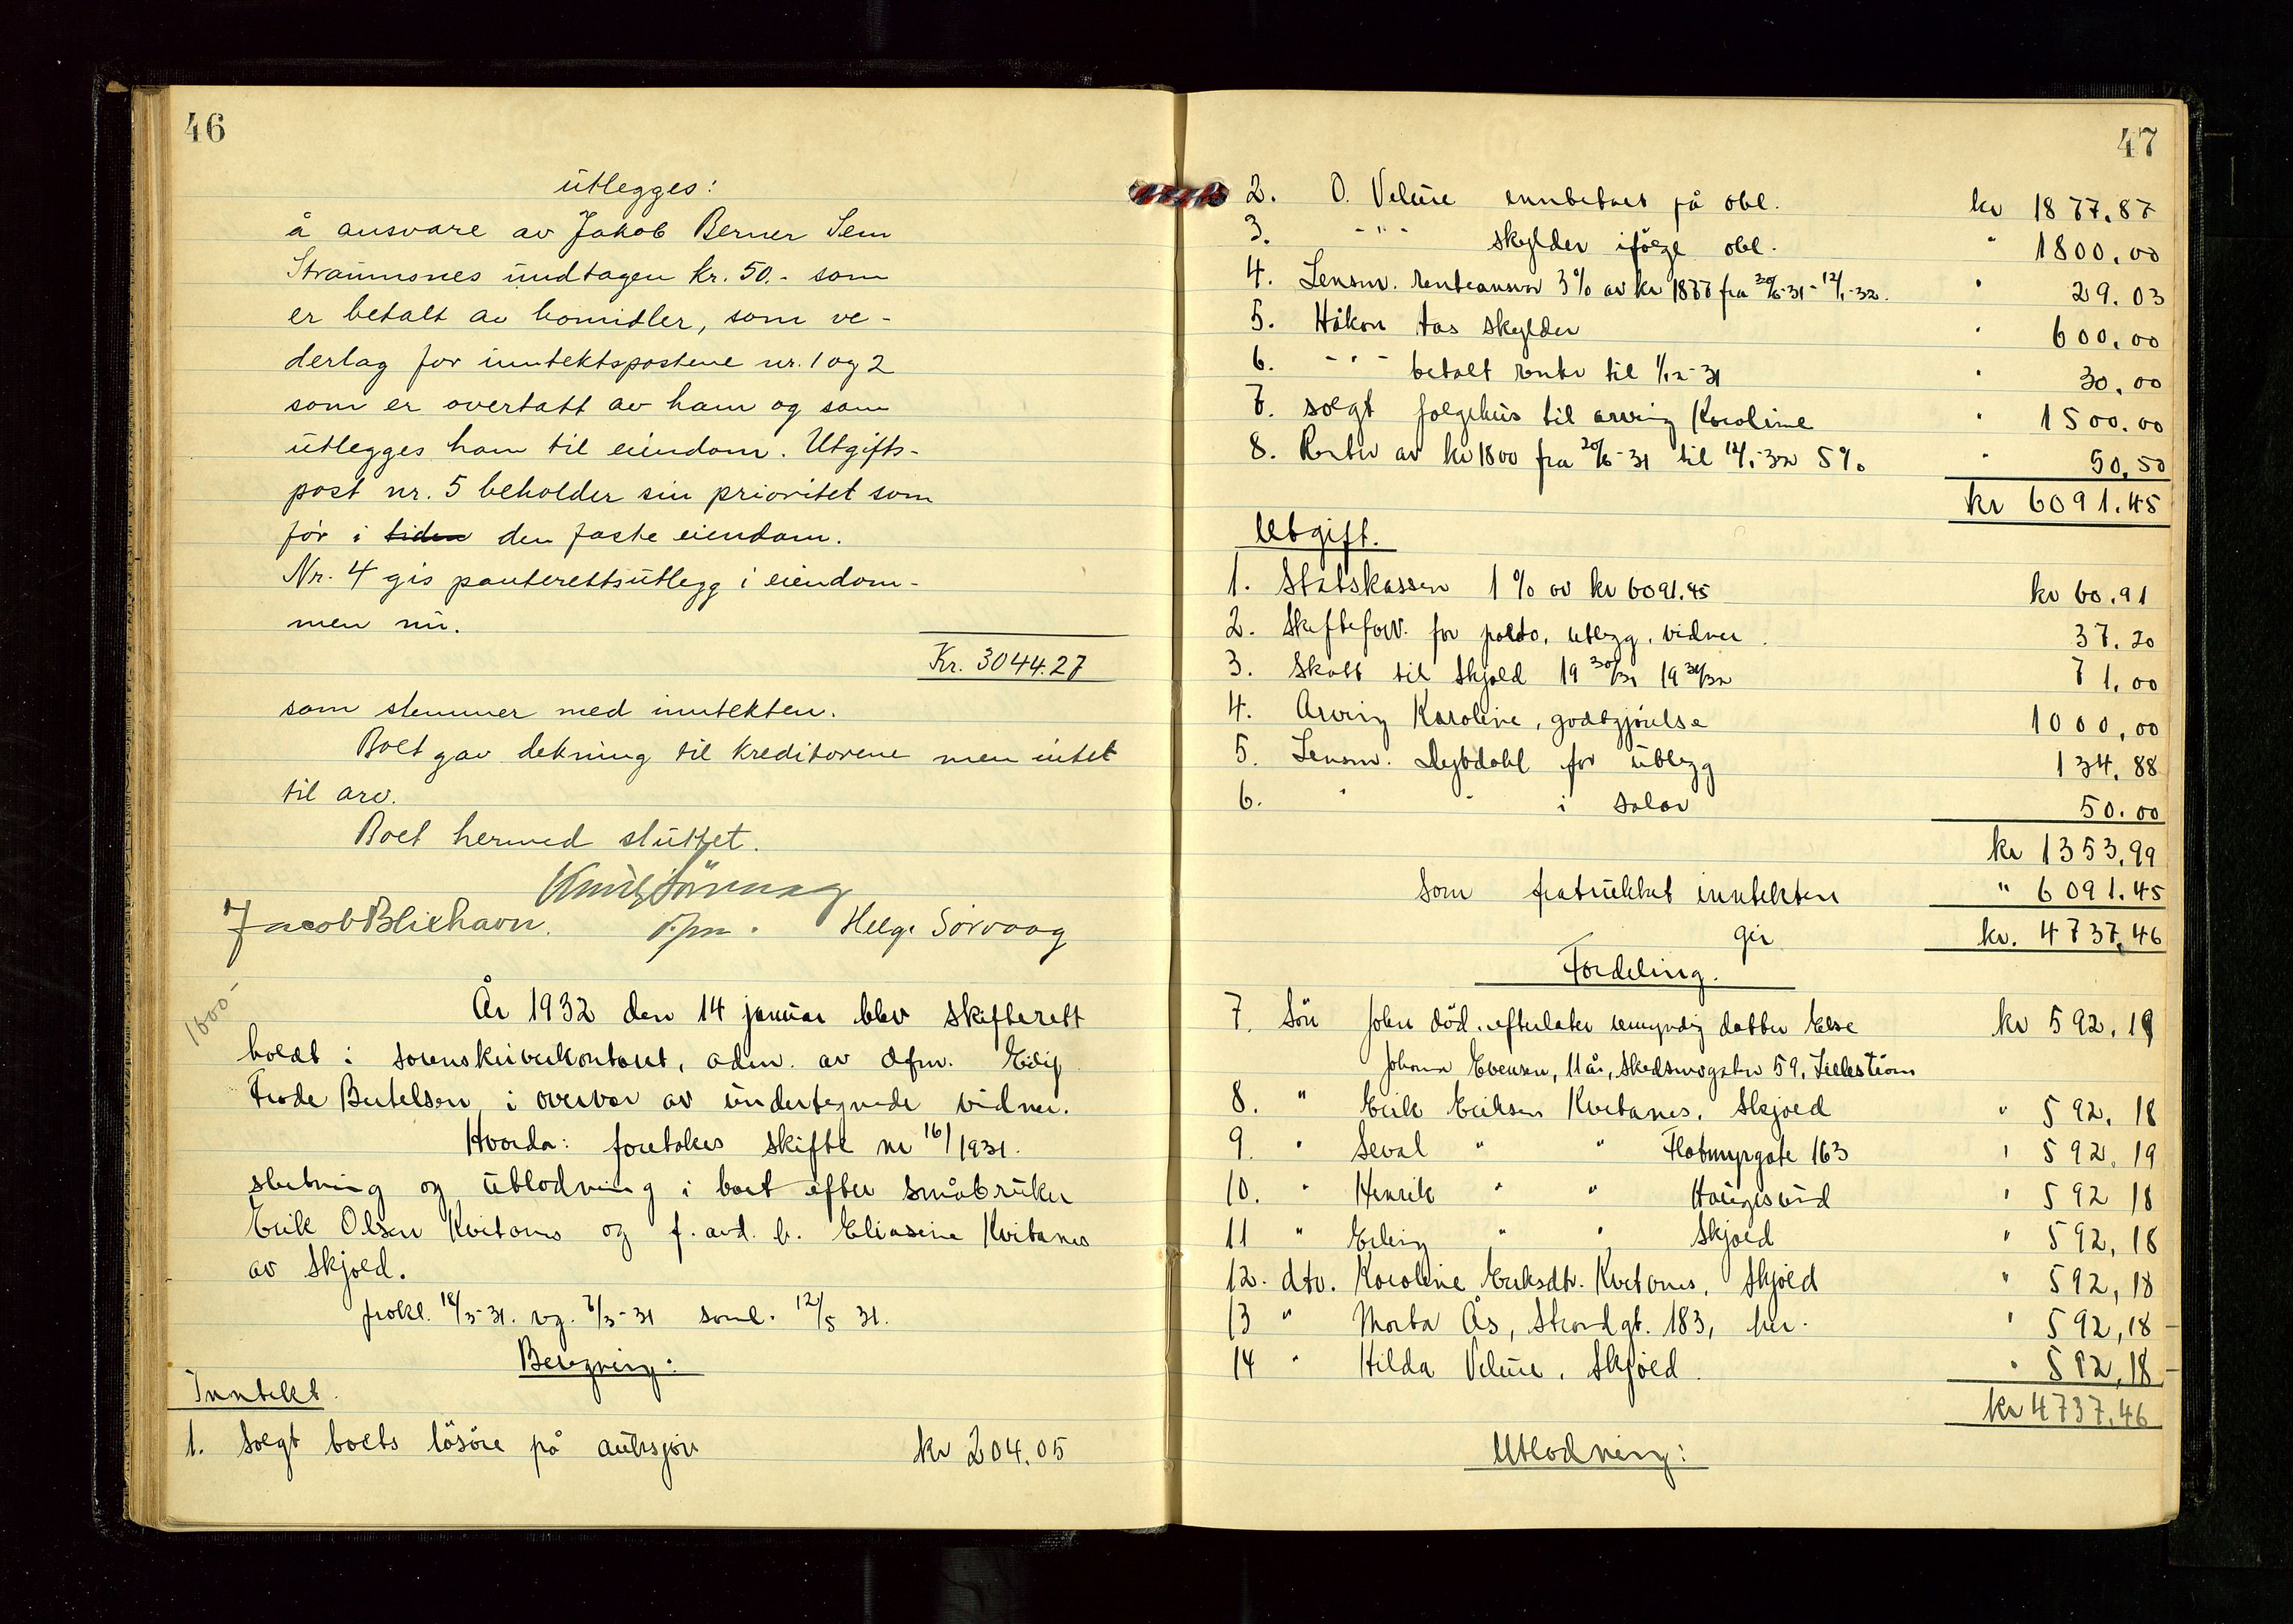 46
utlegges:
å ansvare av Jakob Berner Sem
Straumsnes undtagen kr. 50.- som
er betalt av bomidler, som ve-
derlag for inntektspostene nr. 1 og 2
som er overtatt av ham og som
utlegges ham til eiendom. Utgifts-
post nr. 5 beholder sin prioritet som
før i tiden den faste eiendom.
Nr. 4 gis panterettsutlegg i eiendom-
men nu.
Kr. 3044.27
som stemmer med inntekten.
Boet gav dekning til kreditorene men intet
til arv.
Boet hermed sluttet.
Jacob Blikhavn. Helge Sørvaag
1600-
År 1932 den 14 januar blev skifterett
holdt i sorenskriverkontoret, adm. av dfm.
Frode Bertelsen i overvær av undertegnede vidner.
Hvorda: foretokes skifte nr 16/1931.
slutning og utlodning i boet efter småbruker
Erik Olsen Kvitanes og f. avd. h. Eliasine Kvitanes
av Skjold.
prokl. 18/3-31. rg. 7/3-31 saml. 12/5 31.
Beregning:
Inntekt.
1. Solgt boets løsøre på auksjon kr 204.05
47
2. O. Velure innbetalt på obl. kr 1877.87
3. - " - skylder ifølge obl. " 1800.00
4. Lensm. renteansvar 3% av kr 1877 fra 20/6-31 - 12/1-32. " 29.03
5. Håkon Aas skylder " 600.00
6. - " - betalt rente til 1/12-31 " 30.00
7. Solgt følgehus til arving Karoline " 1500.00
8. Renter av kr 1800 fra 20/6-31 til 12/1-32 5% " 50,50
kr 6091.45
Utgift.
1. Statskassen 1% av kr 6091.45 kr 60.91
2. Skifteforv. for porto, utlegg, vidner. 37.20
3. Skatt til Skjold 19 30/31 19 31/32 71,00
4. Arving Karoline, godtgjørelse 1000,00
5. Lensm. Dybdahl for utlegg 134.88
6. " " i salær 50.00
kr 1353,99
som fratrukket inntekten " 6091.45
gir kr. 4737,46
Fordeling.
7. Søn John død. efterlater umyndig datter Else kr 592.19
Johanna Evensen, 11 år, Skedsmogaten 59, Lillestrøm
8. " Erik Eriksen Kvitanes, Skjold " 592,18
9. " Seval " " Flotmyrgate 163 " 592,19
10. " Henrik " " Haugesund " 592 18
11 " Erling " " Skjold " 592,18
12. dtr. Karoline Eriksdtr. Kvitanes, Skjold " 592,18
13 " Marta Ås, Strandgt. 183, her. " 592,18 -
14 " Hilda Velure, Skjold. " 592,18 -
kr 4737,46
Utlodning: